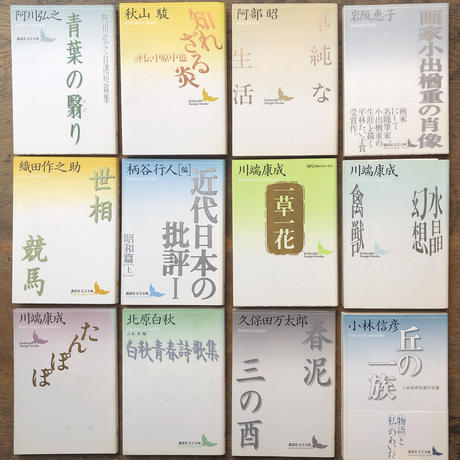 阿川弘之
阿川弘之自選短篇集
青葉の翳り
講談社 文芸文庫
秋山 駿
知れざる炎
評伝中原中也
阿部 昭
単純な生活
岩阪恵子
画家小出楢重の肖像
画家にして
名随筆家、
小出楢重の
生涯を描く
平林たい子賞
受賞作
織田作之助
世相
競馬
講談社 文芸文庫
柄谷行人[編]
近代日本の批評Ⅰ
昭和篇[上]
講談社 文芸文庫
川端康成
一草一花
川端康成
水晶幻想
禽獣
講談社 文芸文庫
川端康成
たんぽぽ
講談社 文芸文庫
北原白秋
白秋青春詩歌集
講談社 文芸文庫
久保田万太郎
春泥
三の酉
講談社 文芸文庫
小林信彦
丘の一族
小林信彦自選作品集
〈物語〉と
〈私〉のあいだ